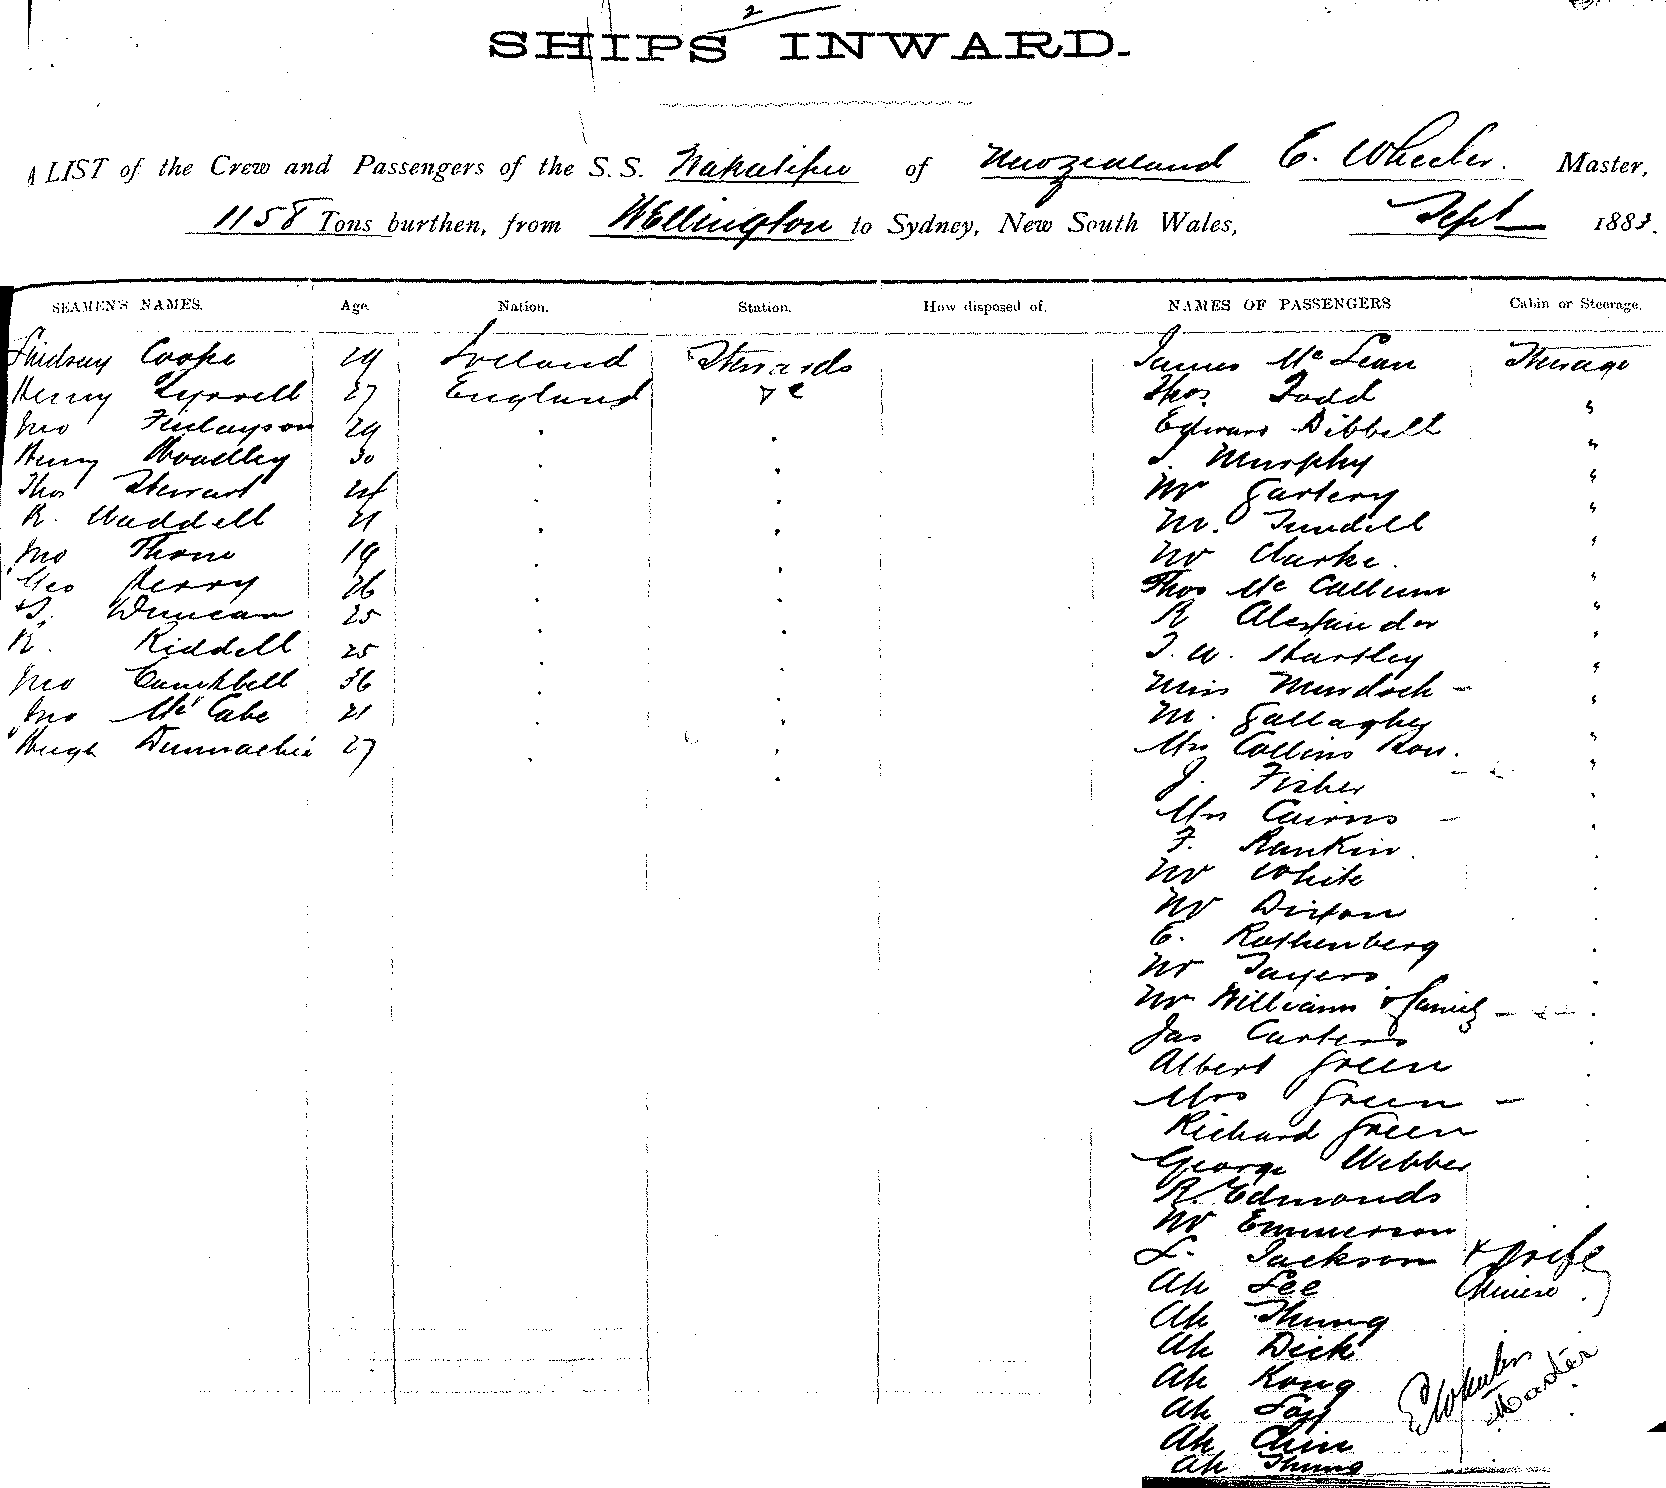 2
SHIPS INWARD.
A LIST of the Crew and Passengers of the S.S. Wakatipu of Newzealand E. Wheeler. Master,
1158 Tons burthen, from Wellington to Sydney, New South Wales, Sept 1883.
SEAMEN'S NAMES. Age. Nation. Station. How disposed of. NAMES OF PASSENGERS Cabin or Steerage.
Lindsay Cooke 29 Ireland Stewards James Mc Lean Steerage
Henry 27 England Thos Todd "
Jno Finlayson 29 Edward Dibbell "
Henry Woodley 30 J. Murphy "
Thos Stewart 24 Mr "
R. Waddell 21 M. "
Jno Thom 19 Mr Clarke. "
Geo Perry 26 Thos Mc Callum "
Duncan 25 R Alexander "
R. Riddell 25 J. W. Hartley "
Jno Campbell 36 Miss Murdoch - "
Jno Mc Cabe 21 M. Gallagher "
Hugh Dunnachie 27 Mrs Collins "
J. Fisher "
Mrs Cairns -
F. Rankin.
Mr White
Mr Dixon
E. Rothenberg
Mr
Mr Williams & family
Jas Carters
Albert Green
Mrs Green -
Richard Green
George Webber
R. Edmonds
Mr Emmerson
Jackson & Wife
Ah Lee Chinese
Ah Thung
Ah Dick
Ah Kong
Ah
Ah Chin
Ah Thung
E Wheeler
Master